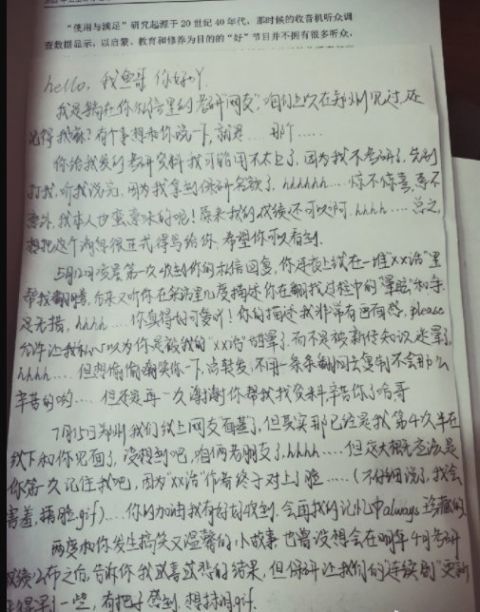 "使用与满足"研究起源于20世纪40年代,那时候的收音机听众调
查数据显示,以启蒙、教育和修养为目的的"好"节目并不拥有很多听众,
hello,我鱼哥 你好吖
我是躺在你私信里的考研"网友",咱们上次在郑州见过,还
记得我嘛?有个事想和你说一下,就是……那个……
你给我发的考研资料我可能用不太上了,因为我不考研了,先别
打我,听我说完,因为我拿到保研名额了,hhhhhh……惊不惊喜,意不
意外,我本人也蛮意外的呢!原来我的成绩还可以啊,hhhh……总之,
想把这个消息很正式得写给你,希望你可以看到.
5月12日应是第一次收到你的私信回复,你在线上试在一堆"xx治"里
帮我翻,后来又听你在里几度描述你在翻我过程中的"晕脸"和手
足无措,hhhh……你真得好可爱吖!你的描述我非常有画面感,please
允许让我私心以为你是被我的"xx治"晕了,而不是被新传知识迷晕了,
hhhh……但想偷偷嘲笑你一下,点转发,不用一条条翻回去复制不会那么
辛苦的哟……但还是再一次谢谢你帮我找资料,辛苦你了哈哥
7月15日郑州我们线上网友面基了,但其实那已经是我第4次半在
线下和你见面了,没想到吧,咱俩老朋友了,hhhh……但这大概应该是
你第一次记住我吧,因为"xx治"作者终于对上了脸……(不仔细说了,我会
害羞,捂脸.gif)……你的加油我有好好收到,会再我的记忆中always 珍藏的
两度和你发生搞笑又温馨的小故事 也曾没想会在明年4月考研
成绩公布之后,告诉你我或喜或悲的结果,但保研让我们的"连续剧"更新
得早了一些,有把子感到,想找.gif